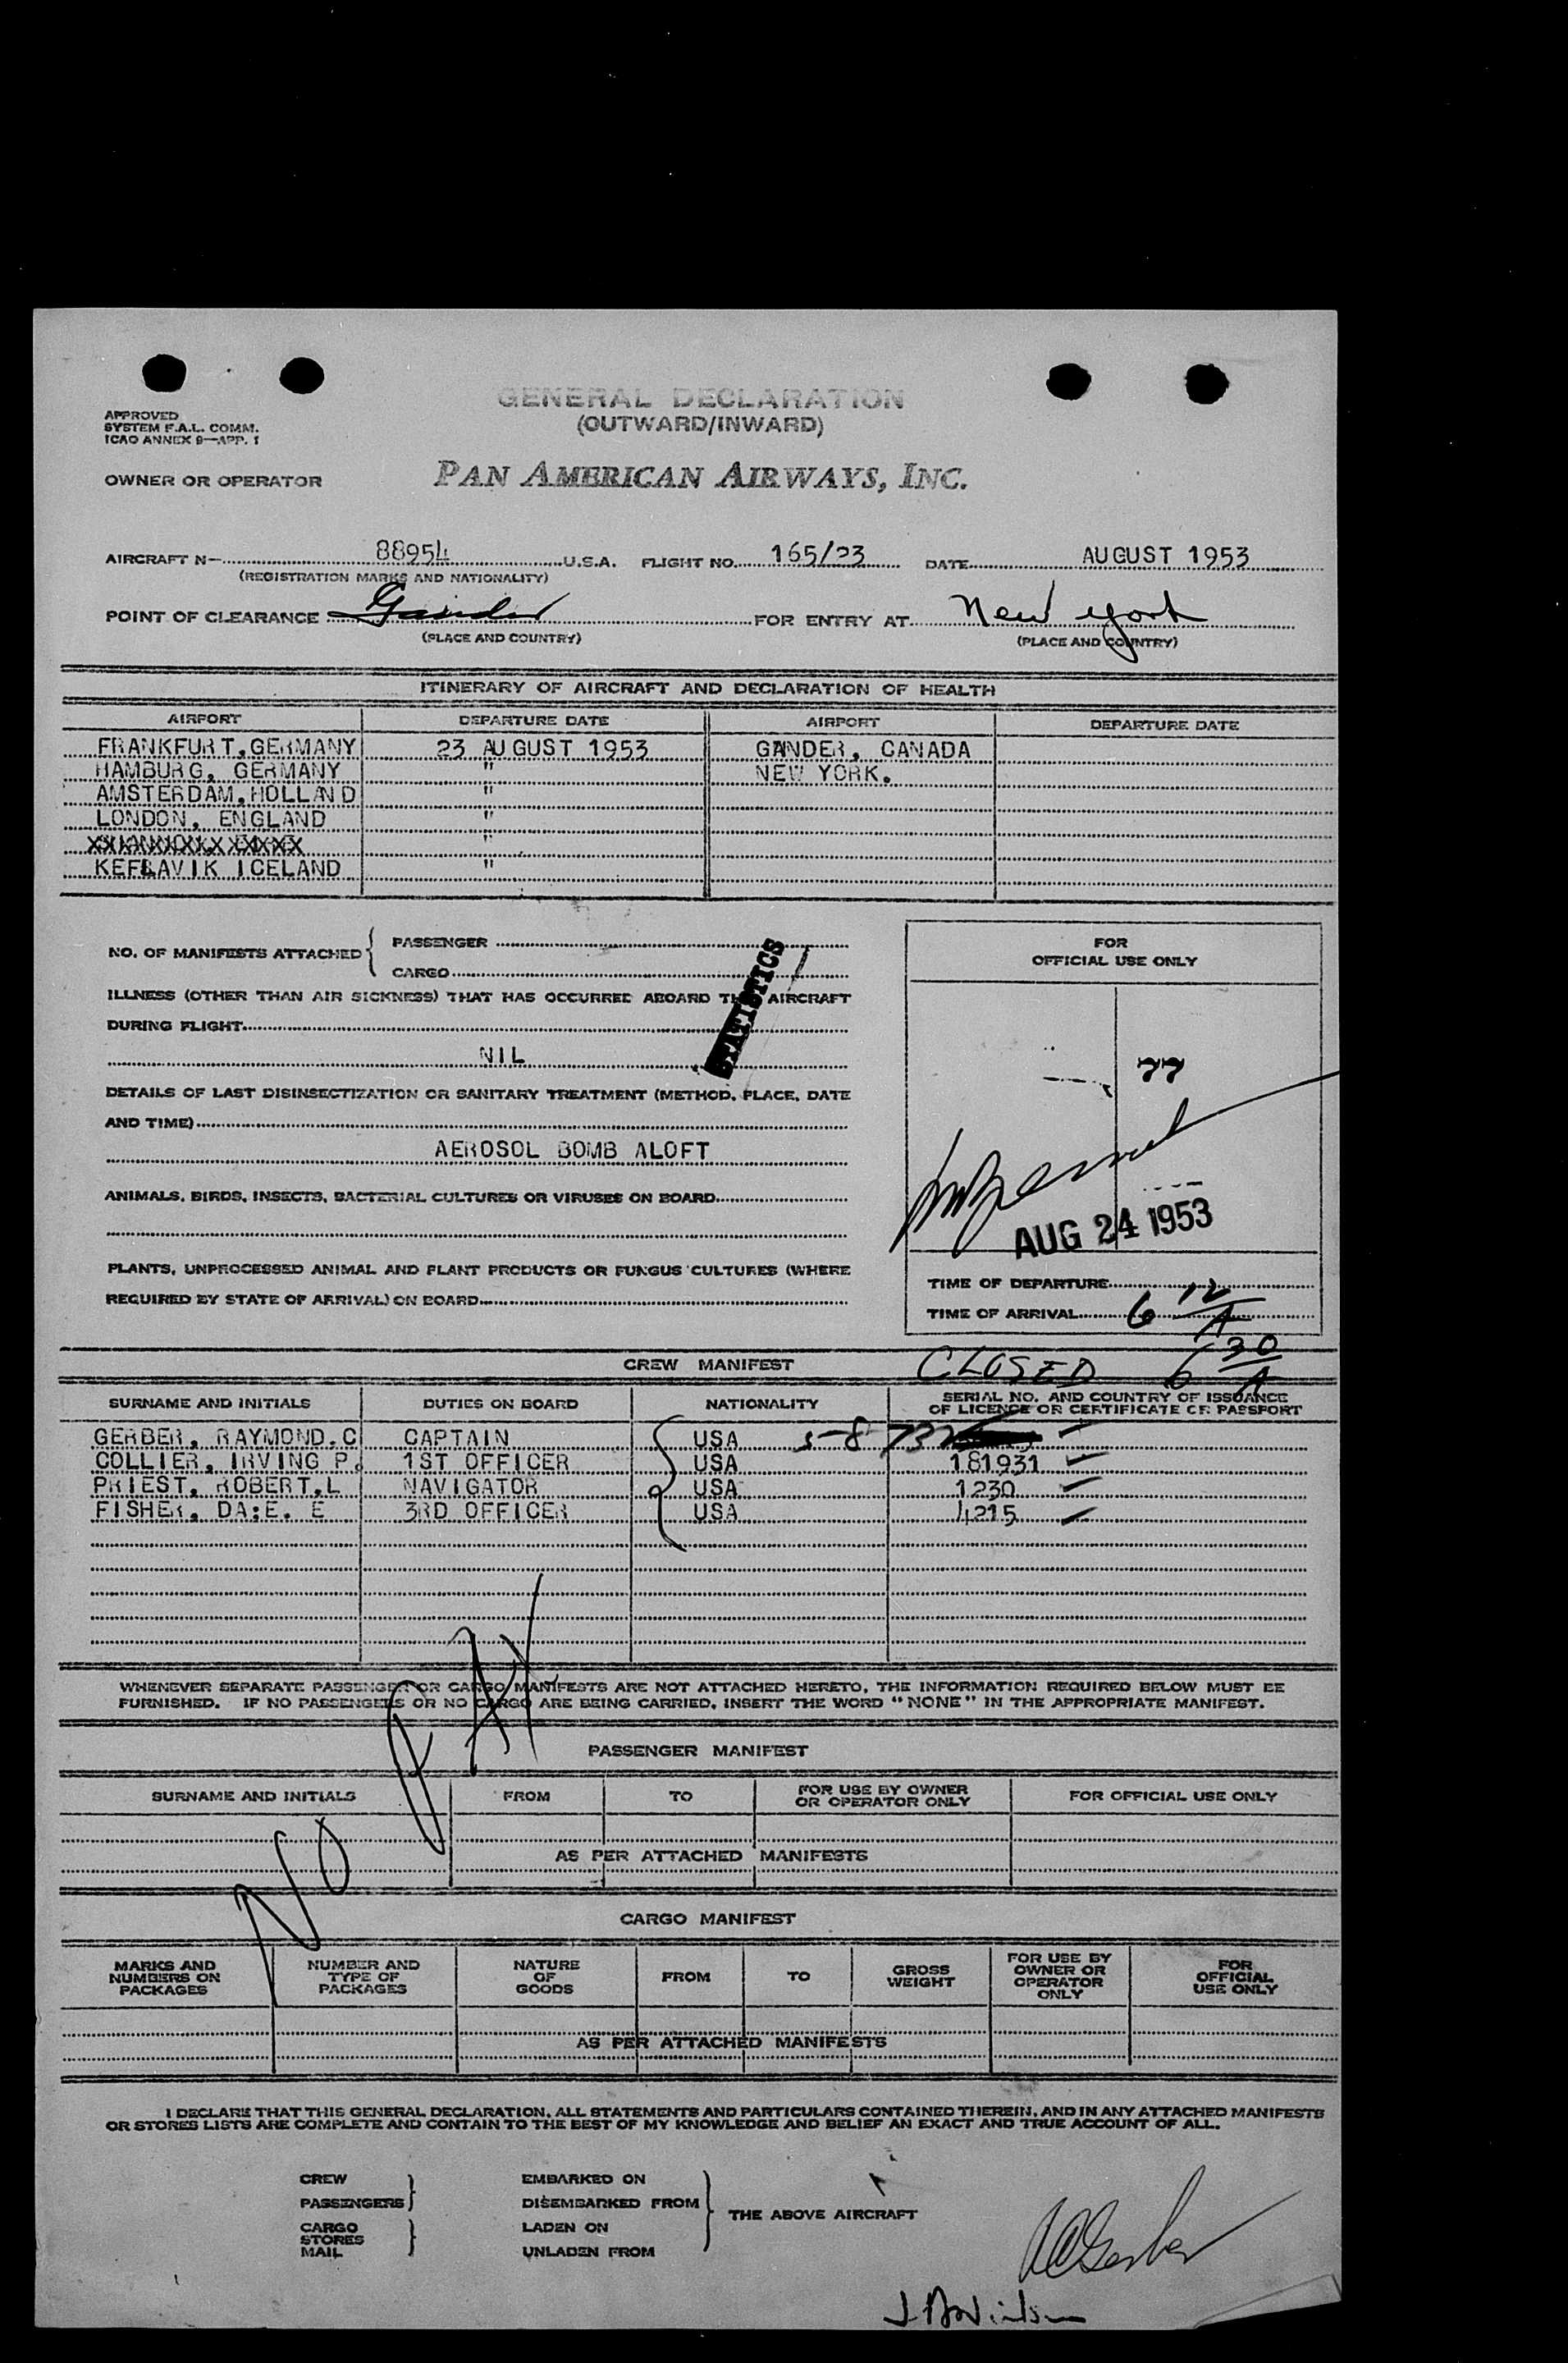 GENERAL DECLARATION
(OUTWARD/INWARD)
APPROVED
SYSTEM F.A.L. COMM.
ICAO ANNEX 9—APP. 1
OWNER OR OPERATOR PAN AMERICAN AIRWAYS, INC.
AIRCRAFT N— 88954 U.S.A. FLIGHT NO. 165/23 DATE AUGUST 1953
(REGISTRATION MARKS AND NATIONALITY)
POINT OF CLEARANCE Gander FOR ENTRY AT New York
(PLACE AND COUNTRY) (PLACE AND COUNTRY)
ITINERARY OF AIRCRAFT AND DECLARATION OF HEALTH
AIRPORT DEPARTURE DATE AIRPORT DEPARTURE DATE
FRANKFURT, GERMANY 23 AUGUST 1953 GANDER, CANADA
HAMBURG, GERMANY " NEW YORK.
AMSTERDAM, HOLLAND "
LONDON, ENGLAND "
"
KEFLAVIK ICELAND "
NO. OF MANIFESTS ATTACHED { PASSENGER
CARGO
STATISTICS
ILLNESS (OTHER THAN AIR SICKNESS) THAT HAS OCCURRED ABOARD THE AIRCRAFT
DURING FLIGHT
NIL
DETAILS OF LAST DISINSECTIZATION OR SANITARY TREATMENT (METHOD, PLACE, DATE
AND TIME)
AEROSOL BOMB ALOFT
ANIMALS, BIRDS, INSECTS, BACTERIAL CULTURES OR VIRUSES ON BOARD
PLANTS, UNPROCESSED ANIMAL AND PLANT PRODUCTS OR FUNGUS CULTURES (WHERE
REQUIRED BY STATE OF ARRIVAL) ON BOARD
FOR
OFFICIAL USE ONLY
77
AUG 24 1953
TIME OF DEPARTURE
TIME OF ARRIVAL 6 12/A
CREW MANIFEST CLOSED 6 30/A
SURNAME AND INITIALS DUTIES ON BOARD NATIONALITY SERIAL NO. AND COUNTRY OF ISSUANCE
OF LICENCE OR CERTIFICATE OR PASSPORT
GERBER, RAYMOND.C CAPTAIN USA
COLLIER, IRVING P. 1ST OFFICER USA 181931
PRIEST, ROBERT.L NAVIGATOR USA 1230
FISHER, DA;E. E 3RD OFFICER USA 4215
NO PAX
WHENEVER SEPARATE PASSENGER OR CARGO MANIFESTS ARE NOT ATTACHED HERETO, THE INFORMATION REQUIRED BELOW MUST BE
FURNISHED. IF NO PASSENGERS OR NO CARGO ARE BEING CARRIED, INSERT THE WORD "NONE" IN THE APPROPRIATE MANIFEST.
PASSENGER MANIFEST
SURNAME AND INITIALS FROM TO FOR USE BY OWNER
OR OPERATOR ONLY FOR OFFICIAL USE ONLY
AS PER ATTACHED MANIFESTS
CARGO MANIFEST
MARKS AND
NUMBERS ON
PACKAGES
NUMBER AND
TYPE OF
PACKAGES
NATURE
OF
GOODS
FROM
TO
GROSS
WEIGHT
FOR USE BY
OWNER OR
OPERATOR
ONLY
FOR
OFFICIAL
USE ONLY
AS PER ATTACHED MANIFESTS
I DECLARE THAT THIS GENERAL DECLARATION, ALL STATEMENTS AND PARTICULARS CONTAINED THEREIN, AND IN ANY ATTACHED MANIFESTS
OR STORES LISTS ARE COMPLETE AND CONTAIN TO THE BEST OF MY KNOWLEDGE AND BELIEF AN EXACT AND TRUE ACCOUNT OF ALL.
CREW
PASSENGERS
CARGO
STORES
MAIL
EMBARKED ON
DISEMBARKED FROM
LADEN ON
UNLADEN FROM
THE ABOVE AIRCRAFT
RCGerber